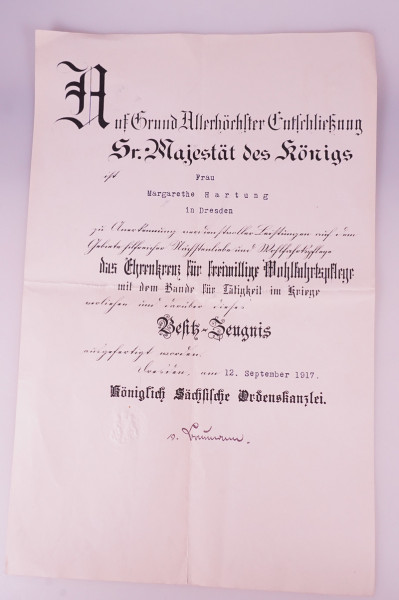 Auf Grund Allerhöchster Entschließung
Sr. Majestät des Königs
ist Frau
Margarethe Hartung
in Dresden
zu Anerkennung verdienstvoller Leistungen auf dem
Gebiete hilfreicher Nächstenliebe und Wohlfahrtspflege
das Ehrenkreuz für freiwillige Wohlfahrtspflege
mit dem Bande für Tätigkeit im Kriege
verliehen und darüber dieses
Besitz-Zeugnis
ausgefertigt worden.
Dresden, am 12. September 1917.
Königlich Sächsische Ordenskanzlei.
v.